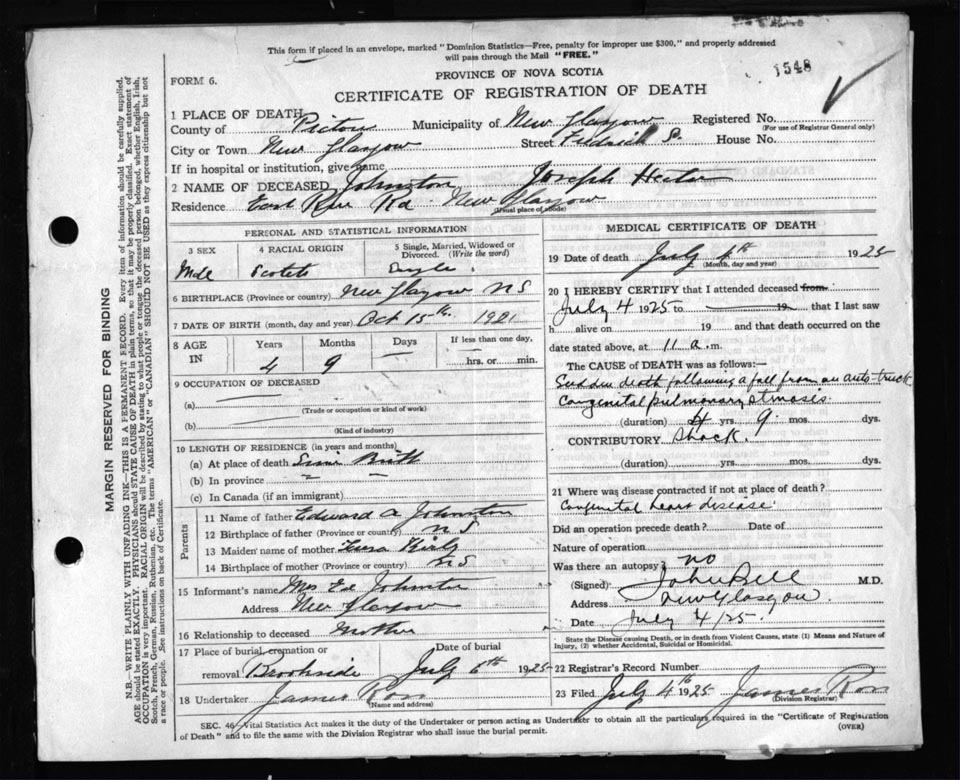 This form if placed in an envelope, marked "Dominion Statistics—Free, penalty for improper use $300," and properly addressed
will pass through the Mail "FREE."
1548
FORM 6.
PROVINCE OF NOVA SCOTIA
CERTIFICATE OF REGISTRATION OF DEATH
1 PLACE OF DEATH
County of Pictou Municipality of New Glasgow Registered No.
(For use of Registrar General only)
City or Town New Glasgow Street House No.
If in hospital or institution, give name
2 NAME OF DECEASED Johnston Joseph Hector
Residence East River Rd. New Glasgow
(Usual place of abode)
PERSONAL AND STATISTICAL INFORMATION
3 SEX 4 RACIAL ORIGIN 5 Single, Married, Widowed or
Divorced. (Write the word)
Male Single
6 BIRTHPLACE (Province or country) New Glasgow N S
7 DATE OF BIRTH (month, day and year) Oct 15th 1921
8 AGE IN Years Months Days If less than one day,
4 9 — hrs. or min.
9 OCCUPATION OF DECEASED
(a)
(Trade or occupation or kind of work)
(b)
(Kind of industry)
10 LENGTH OF RESIDENCE (in years and months)
(a) At place of death Birth
(b) In province " "
(c) In Canada (if an immigrant)
Parents
11 Name of father Edward A Johnston
12 Birthplace of father (Province or country) N S
13 Maiden name of mother
14 Birthplace of mother (Province or country) N S
15 Informant's name Mrs Ed Johnston
Address New Glasgow
16 Relationship to deceased Mother
17 Place of burial, cremation or Date of burial
removal Brookside July 6th 1925
18 Undertaker James Ross
(Name and address)
MEDICAL CERTIFICATE OF DEATH
19 Date of death July 4th 1925
(Month, day and year)
20 I HEREBY CERTIFY that I attended deceased from
July 4 1925 to 19 that I last saw
h alive on 19 and that death occurred on
the date stated above, at 11 a. m.
The CAUSE OF DEATH was as follows:
Sudden death following a fall from an auto-truck
Congenital pulmonary stenosis.
(duration) 4 yrs. 9 mos. dys.
CONTRIBUTORY Shock.
(duration) yrs. mos. dys.
21 Where was disease contracted if not at place of death?
Congenital heart disease.
Did an operation precede death? Date of
Nature of operation
Was there an autopsy? no
(Signed) John Bell M.D.
Address New Glasgow
Date July 4/25.
State the Disease causing Death, or in death from Violent Causes, state (1) Means and Nature of
Injury, (2) whether Accidental, Suicidal or Homicidal.
22 Registrar's Record Number
23 Filed July 4th 1925 James Ross
(Division Registrar)
SEC. 46 Vital Statistics Act makes it the duty of the Undertaker or person acting as Undertaker to obtain all the particulars required in the "Certificate of Registration
of Death" and to file the same with the Division Registrar who shall issue the burial permit.
(OVER)
MARGIN RESERVED FOR BINDING
N.B.—WRITE PLAINLY WITH UNFADING INK—THIS IS A PERMANENT RECORD. Every item of information should be carefully supplied.
AGE should be stated EXACTLY. PHYSICIANS should STATE CAUSE OF DEATH in plain terms, so that it may be properly classified. Exact statement of
OCCUPATION is very important. RACIAL ORIGIN will be described by stating to what people or tongue the deceased person belonged, whether English, Irish,
Scotch, French, German, Russian, Ruthenian, etc. The terms "AMERICAN" or "CANADIAN" SHOULD NOT BE USED as they express citizenship but not
a race or people. See instructions on back of Certificate.